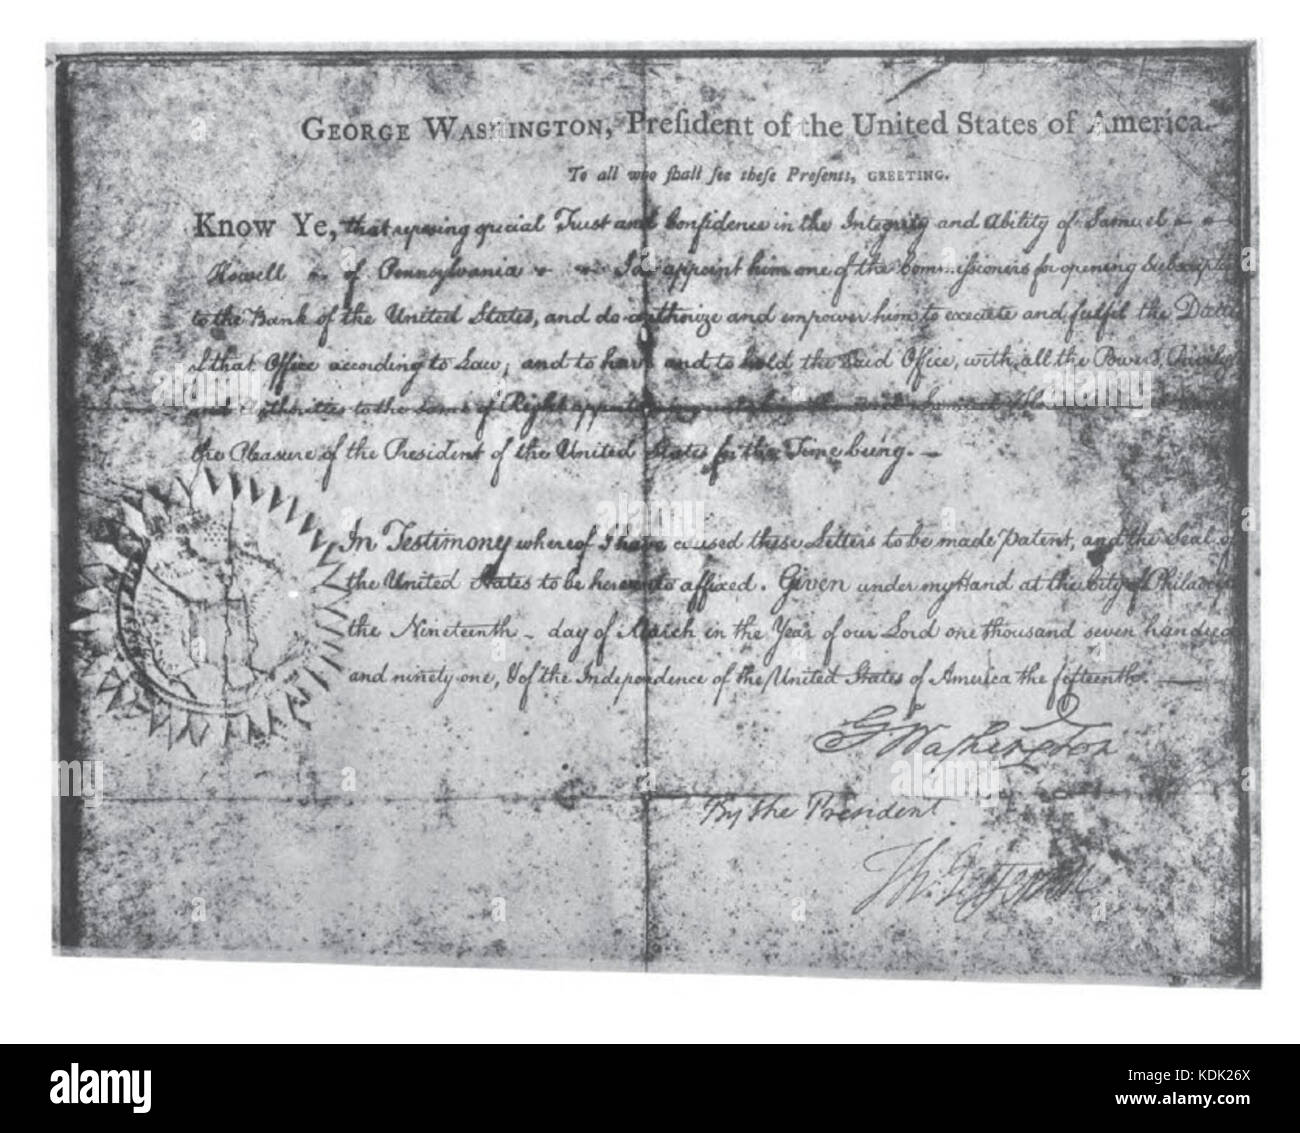 GEORGE WASHINGTON, Preſident of the United States of America.
To all who ſhall ſee theſe Preſents, GREETING.
Know Ye, that reposing special Trust and Confidence in the Integrity and Ability of Samuel
Howell of Pennsylvania I do appoint him one of the Commissioners for opening Subscriptio
to the Bank of the United States, and do authorize and empower him to execute and fulfil the Duties
of that Office according to Law; and to have and to hold the said Office, with all the Powers, Privileges
and Authorities to the same of Right
the Pleasure of the President of the United States for the Time being.
In Testimony whereof I have caused these Letters to be made Patent, and the Seal of
the United States to be hereunto affixed. Given under my Hand at the City of Philadel
the Nineteenth day of March in the Year of our Lord one thousand seven hundred
and ninety one, & of the Independence of the United States of America the fifteenth.
Go Washington
By the President
Th: Jefferson
alamy
Image ID: KDK26X
www.alamy.com